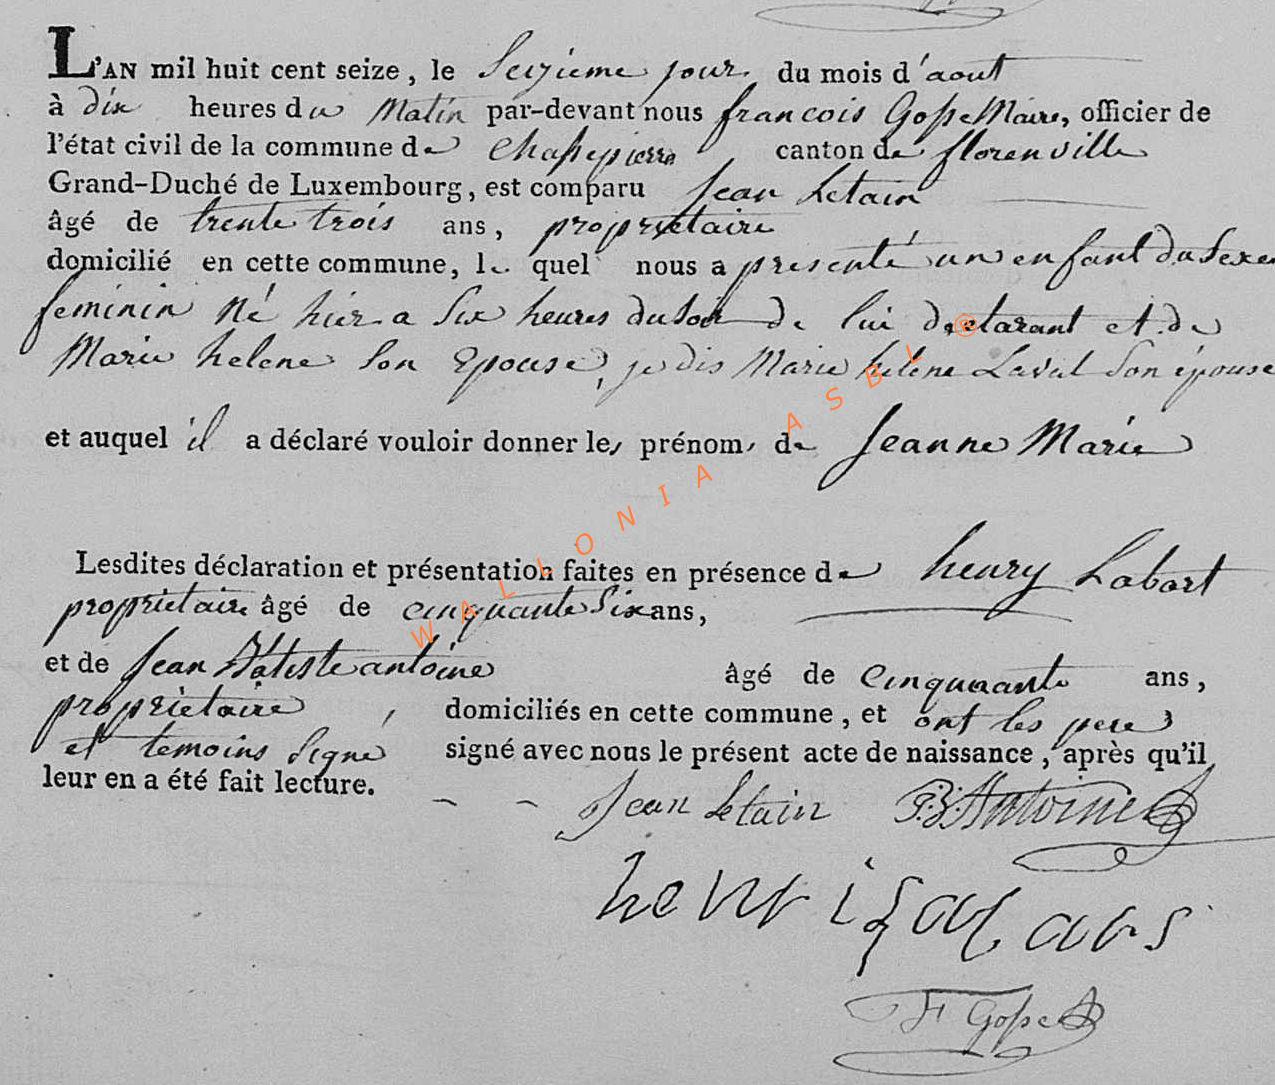 L'AN mil huit cent seize, le Seizieme jour du mois d'aout
à dix heures du Matin par-devant nous francois Gosse Maire, officier de
l'état civil de la commune de Chassepierre canton de florenville
Grand-Duché de Luxembourg, est comparu Jean Letain
âgé de trente trois ans, proprietaire
domicilié en cette commune, le quel nous a presenté un enfant du Sexe
feminin né hier a Six heures du Soir de lui declarant et de
Marie helene Son Epouse, je dis Marie helene Laval Son épouse
et auquel il a déclaré vouloir donner les prénoms de Jeanne Marie
Lesdites déclaration et présentation faites en présence de henry
proprietaire âgé de cinquante Six ans,
et de Jean Batiste antoine âgé de Cinquante ans,
proprietaire, domiciliés en cette commune, et ont les pere
et temoins Signe signé avec nous le présent acte de naissance, après qu'il
leur en a été fait lecture.
Jean Letain J.B. Antoine
henri
F Gosse
WALLONIA ASBL ®